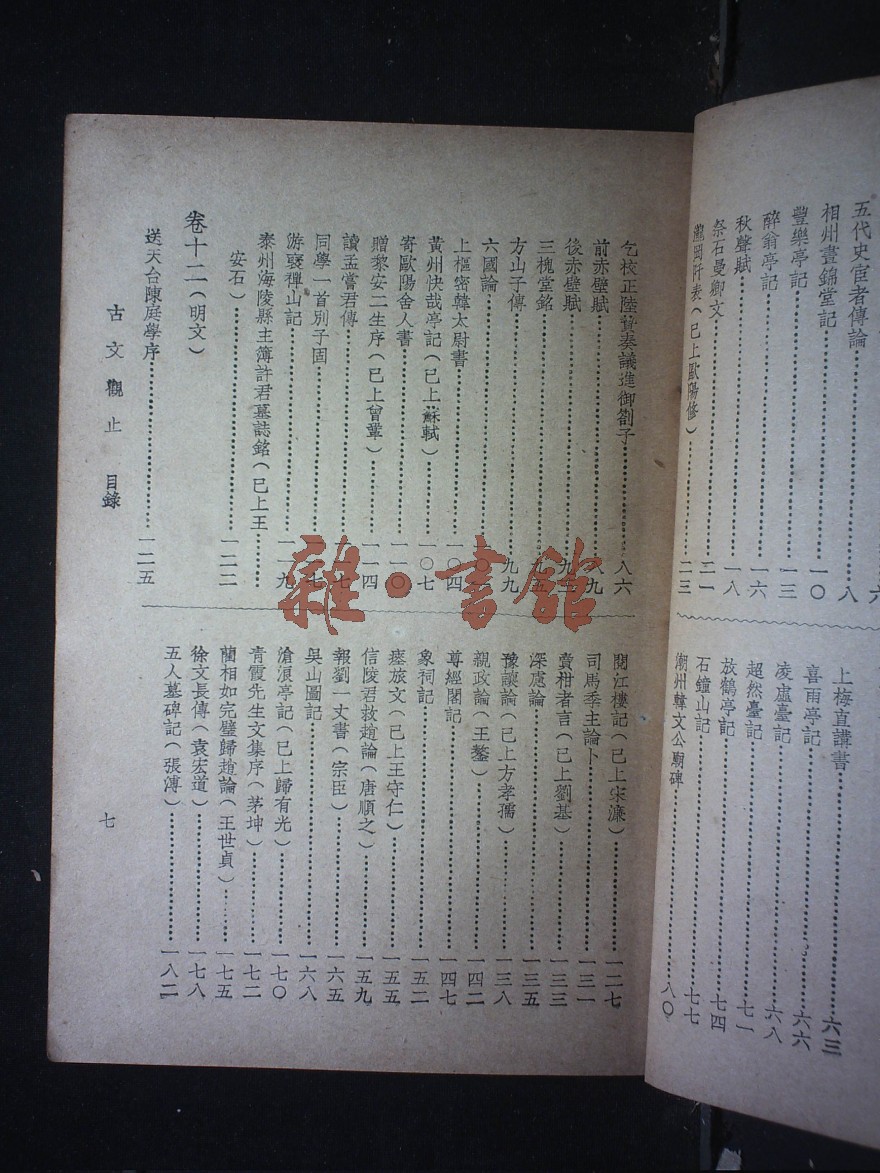 五代史宦者傳論……八
相州晝錦堂記……一〇
豐樂亭記……一三
醉翁亭記……一六
秋聲賦……一八
祭石曼卿文……二一
瀧岡阡表(已上歐陽修)……二三
上梅直講書……六三
喜雨亭記……六六
凌虛臺記……六八
超然臺記……七一
放鶴亭記……七四
石鐘山記……七七
潮州韓文公廟碑……八〇
乞校正陸贄奏議進御劄子……八六
前赤壁賦……八九
後赤壁賦……
三槐堂銘……九五
方山子傳……九九
六國論……
上樞密韓太尉書……一〇四
黃州快哉亭記(已上蘇軾)……一〇七
寄歐陽舍人書……一一〇
贈黎安二生序(已上曾鞏)……一一四
讀孟嘗君傳……一一七
同學一首別子固……一一七
游褒禪山記……一一九
泰州海陵縣主簿許君墓誌銘(已上王
安石)……一二二
卷十二(明文)
送天台陳庭學序……一二五
閱江樓記(已上宋濂)……一二七
司馬季主論卜……一三一
賣柑者言(已上劉基)……一三三
深慮論……一三五
豫讓論(已上方孝孺)……一三八
親政論(王鏊)……一四二
尊經閣記……一四七
象祠記……一五二
瘞旅文(已上王守仁)……一五五
信陵君救趙論(唐順之)……一五九
報劉一丈書(宗臣)……一六五
吳山圖記……一六八
滄浪亭記(已上歸有光)……一七〇
青霞先生文集序(茅坤)……一七二
藺相如完璧歸趙論(王世貞)……一七五
徐文長傳(袁宏道)……一七八
五人墓碑記(張溥)……一八二
古文觀止 目錄
七
雜·書館